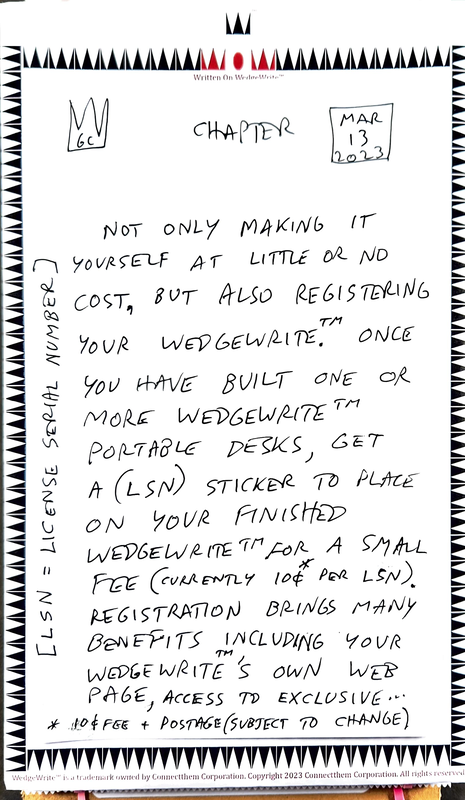 Written On WedgeWrite™
GC
CHAPTER
MAR
13
2023
NOT ONLY MAKING IT
YOURSELF AT LITTLE OR NO
COST, BUT ALSO REGISTERING
YOUR WEDGEWRITE.™ ONCE
YOU HAVE BUILT ONE OR
MORE WEDGEWRITE™
PORTABLE DESKS, GET
A (LSN) STICKER TO PLACE
ON YOUR FINISHED
WEDGEWRITE™ FOR A SMALL
FEE (CURRENTLY 10¢* PER LSN).
REGISTRATION BRINGS MANY
BENEFITS INCLUDING YOUR
WEDGEWRITE™'S OWN WEB
PAGE, ACCESS TO EXCLUSIVE...
* 10¢ FEE + POSTAGE (SUBJECT TO CHANGE)
[LSN = LICENSE SERIAL NUMBER]
WedgeWrite™ is a trademark owned by Connectthem Corporation. Copyright 2023 Connectthem Corporation. All rights reserved